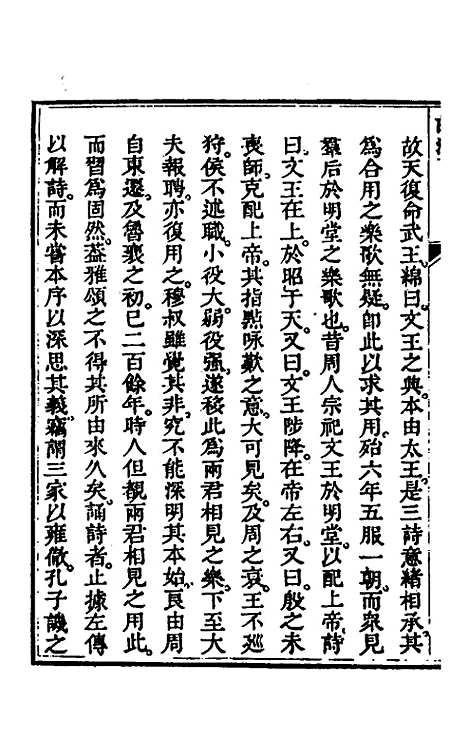 故天復命武王緜曰文王之典本由太王是三詩意緒相承其
為合用之樂歌無疑卽此以求其用殆六年五服一朝而衆見
羣后於明堂之樂歌也昔周人宗祀文王於明堂以配上帝詩
曰文王在上於昭于天又曰文王陟降在帝左右又曰殷之未
喪師克配上帝其指點咏歎之意大可見矣及周之衰王不廵
狩侯不述職小役大弱役强遂移此為兩君相見之樂下至大
夫報聘亦復用之穆叔雖覺其非究不能深明其本始良由周
自東遷及魯襄之初已二百餘年時人但覩兩君相見之用此
而習為固然葢雅頌之不得其所由來久矣誦詩者止據左傳
以解詩而未嘗本序以深思其義竊謂三家以雍徹孔子譏之